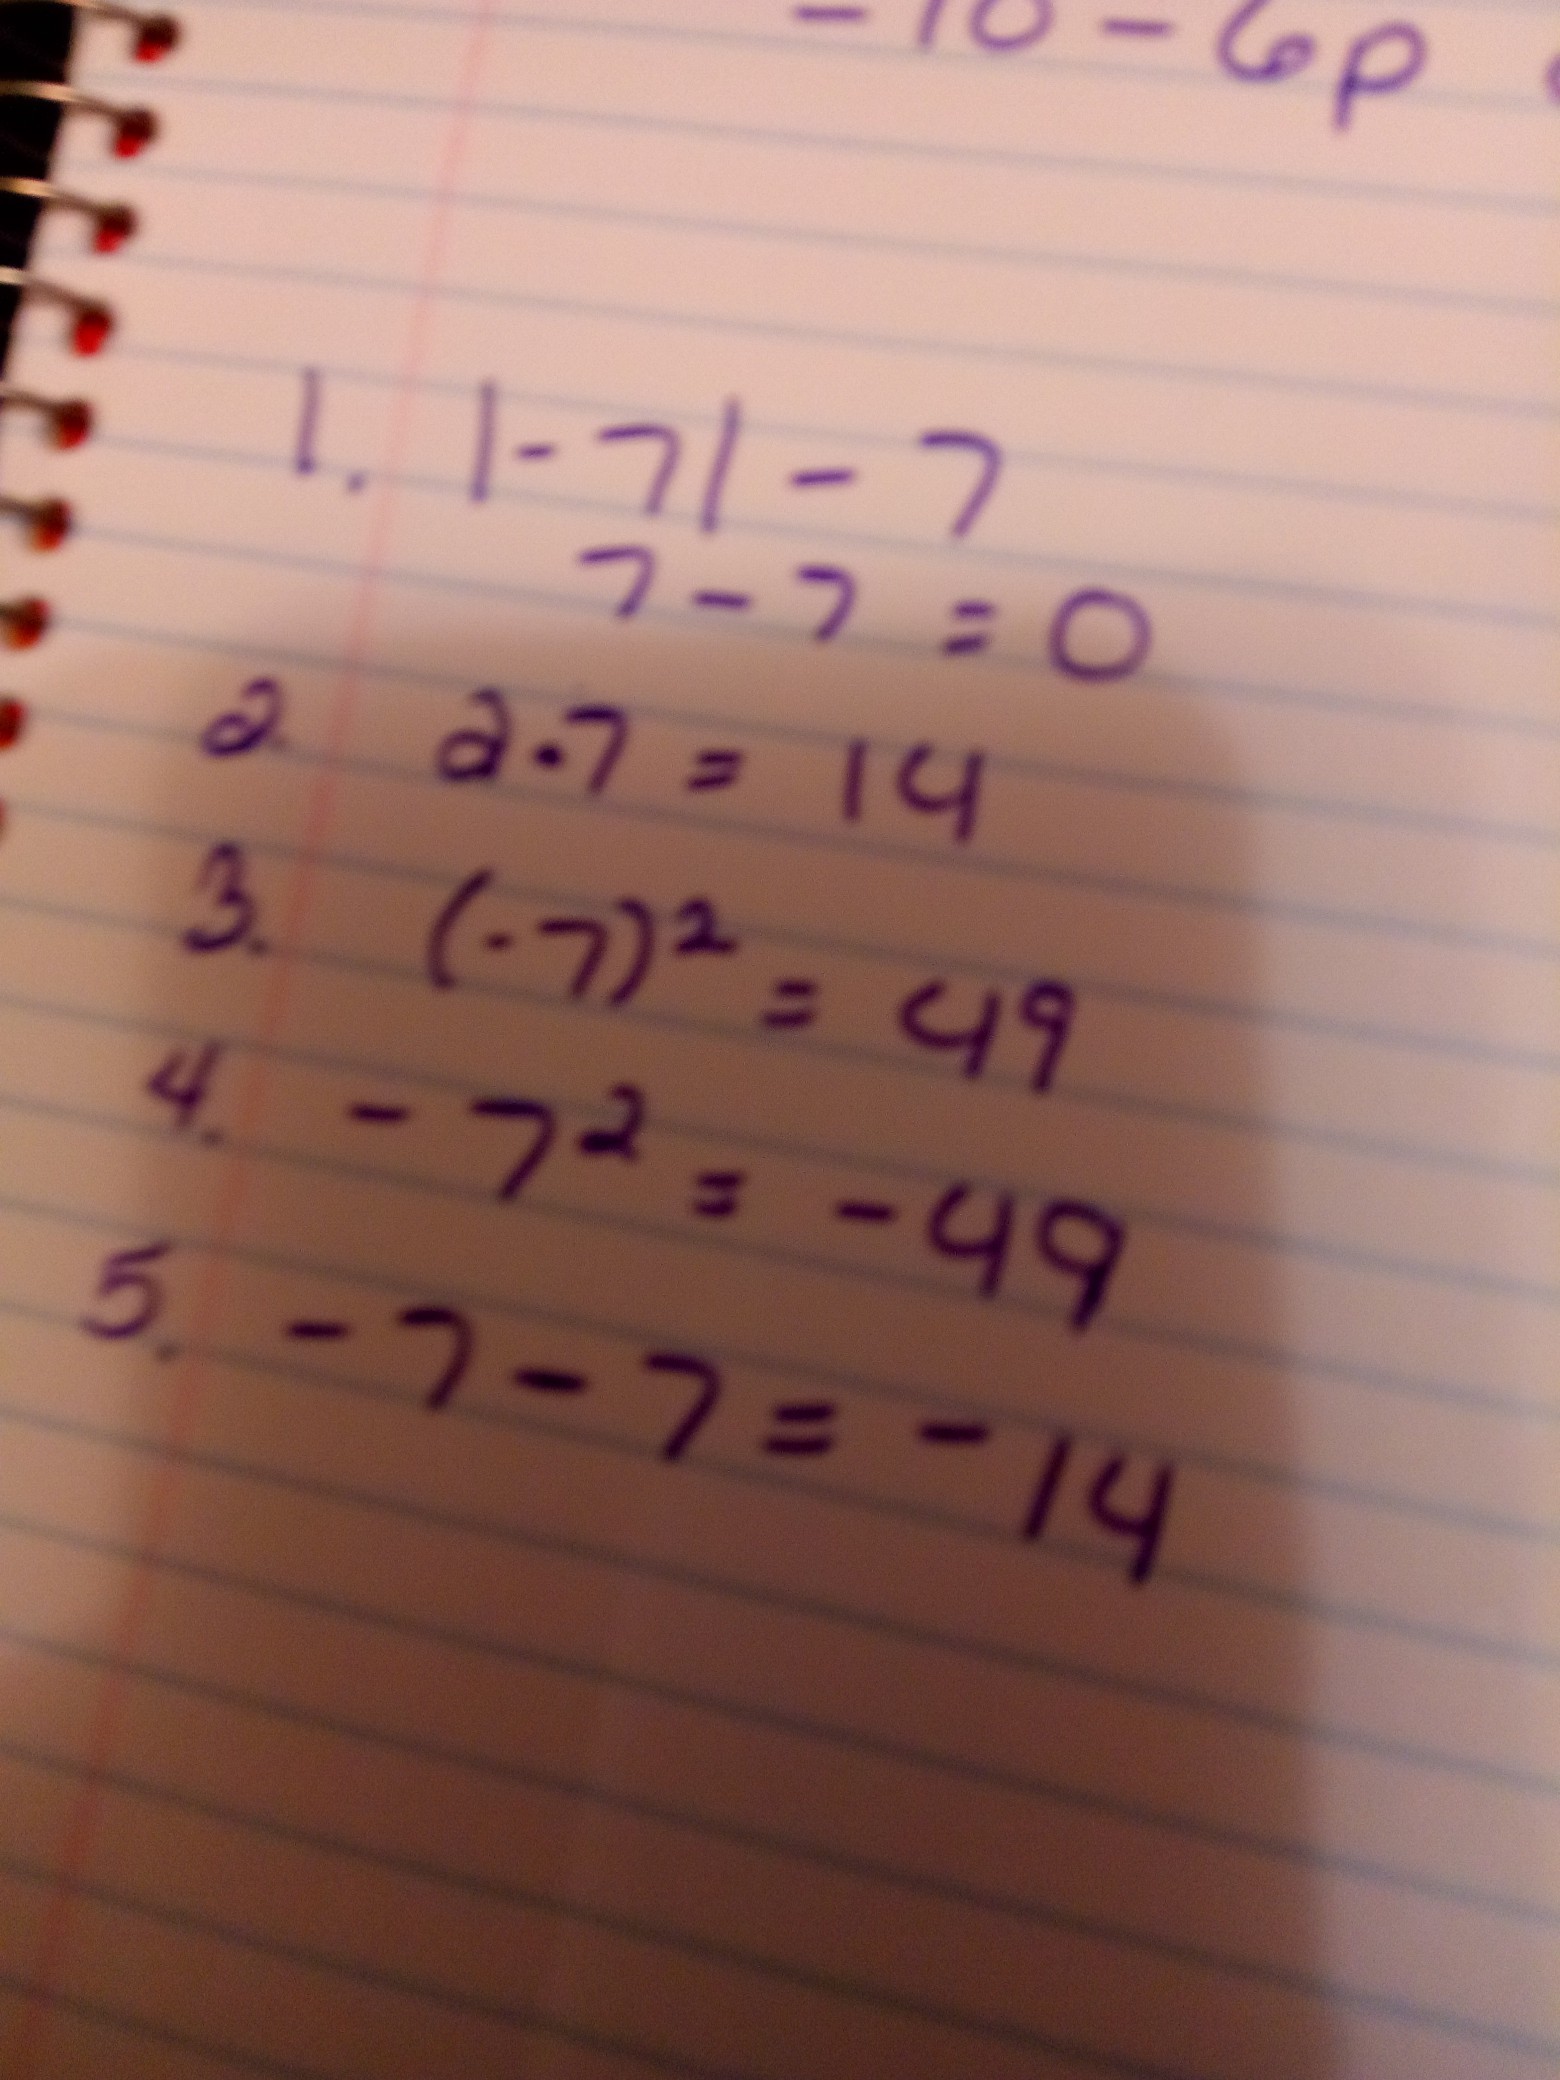 -10-6p
1. |-7| - 7
7 - 7 = 0
2. 2·7 = 14
3. (-7)² = 49
4. -7² = -49
5. -7-7 = -14